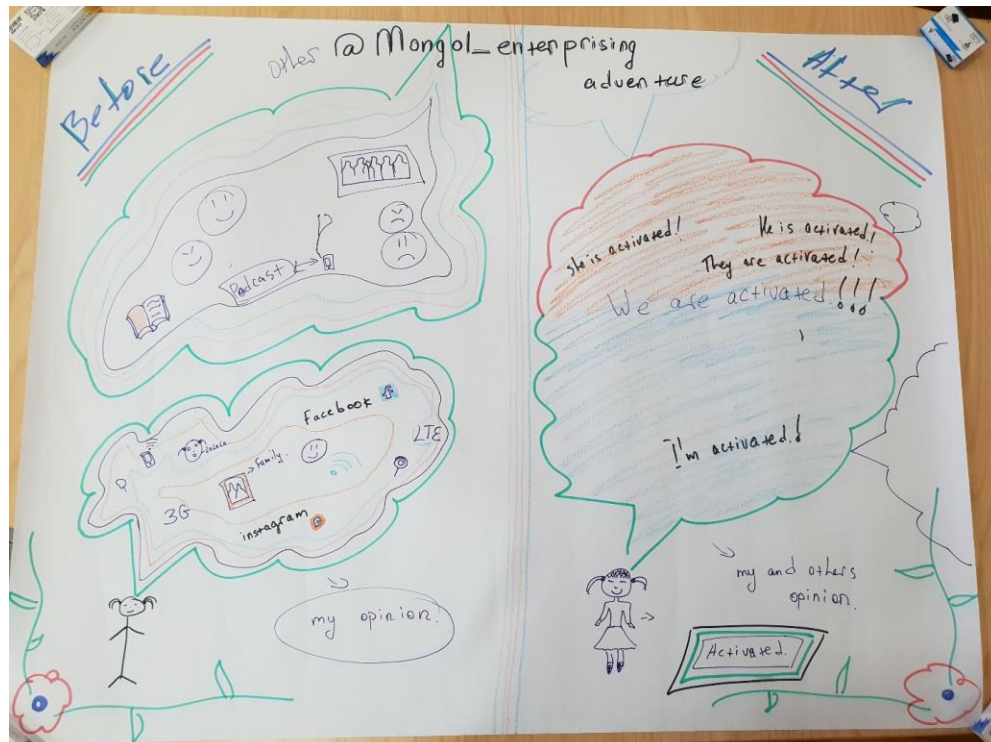 Before
other @Mongol_enterprising
adventure
After
Podcast
Facebook
LTE
lalala.
family.
3G
instagram
my opinion!
she is activated!
He is activated!
They are activated!
We are activated.!!!
I'm activated.!
my and others
opinion.
Activated.